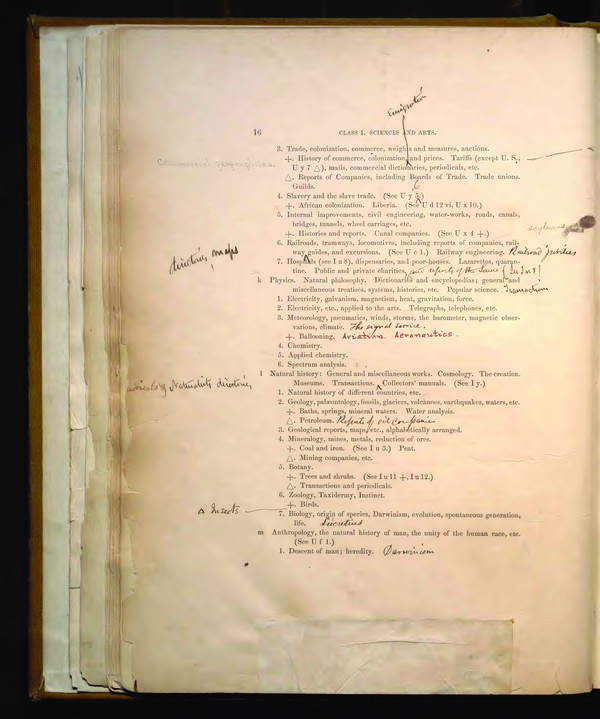 Emigration
16 CLASS I. SCIENCES AND ARTS.
3. Trade, colonization, commerce, weights and measures, auctions.
Commercial geographies.
+. History of commerce, colonization, and prices. Tariffs (except U. S.,
U y 7 △), mails, commercial dictionaries, periodicals, etc.
△. Reports of Companies, including Boards of Trade. Trade unions.
Guilds.
4. Slavery and the slave trade. (See U y
+. African colonization. Liberia. (See U d 12 vi, U x 10.)
5. Internal improvements, civil engineering, water-works, roads, canals,
bridges, tunnels, wheel carriages, etc.
asylums
+. Histories and reports. Canal companies. (See U x 4 +.)
6. Railroads, tramways, locomotives, including reports of companies, rail-
way guides, and excursions. (See U c 1.) Railway engineering. Railroad
directories, maps
7. Hospitals (see I n 8), dispensaries, and poor-houses. Lazarettos, quaran-
tine. Public and private charities, and reports of the same
k Physics. Natural philosophy. Dictionaries and encyclopedias; general and
miscellaneous treatises, systems, histories, etc. Popular science. Transactions
1. Electricity, galvanism, magnetism, heat, gravitation, force.
2. Electricity, etc., applied to the arts. Telegraphs, telephones, etc.
3. Meteorology, pneumatics, winds, storms, the barometer, magnetic obser-
vations, climate. The signal service.
+. Ballooning. Aviation. Aeronautics.
4. Chemistry.
5. Applied chemistry.
6. Spectrum analysis.
l Natural history: General and miscellaneous works. Cosmology. The creation.
Naturalists directories,
Museums. Transactions. Collectors' manuals. (See I y.)
1. Natural history of different countries, etc.
2. Geology, palæontology, fossils, glaciers, volcanoes, earthquakes, waters, etc.
+. Baths, springs, mineral waters. Water analysis.
△. Petroleum. Reports of oil companies
3. Geological reports, maps, etc., alphabetically arranged.
4. Mineralogy, mines, metals, reduction of ores.
+. Coal and iron. (See I n 3.) Peat.
△. Mining companies, etc.
5. Botany.
+. Trees and shrubs. (See I u 11 +, I u 12.)
△. Transactions and periodicals.
6. Zoology, Taxidermy, Instinct.
+. Birds.
△ Insects
7. Biology, origin of species, Darwinism, evolution, spontaneous generation,
life. Societies
m Anthropology, the natural history of man, the unity of the human race, etc.
(See U f 1.)
1. Descent of man; heredity. Darwinism